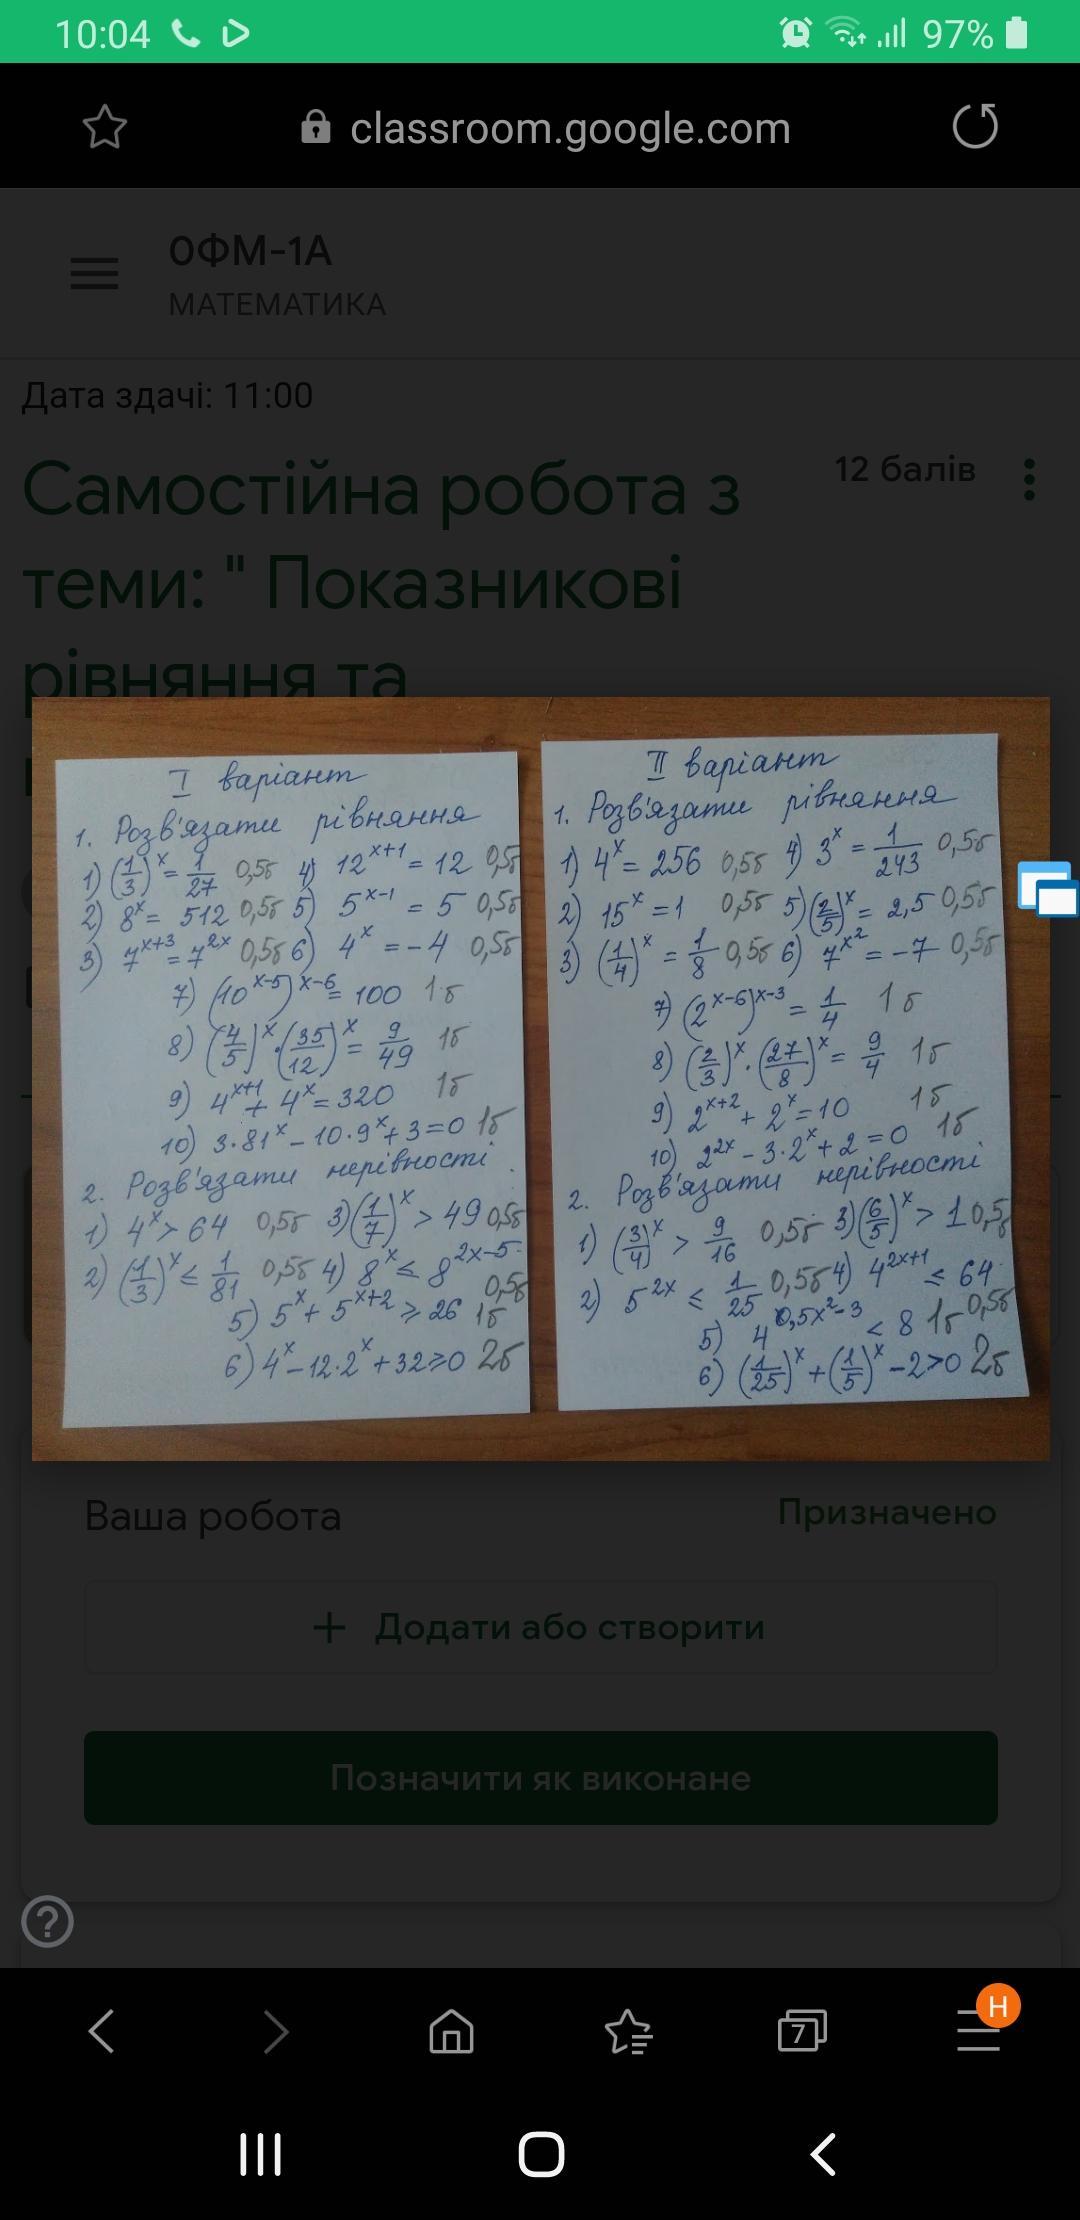 10:04 97%
classroom.google.com
ОФМ-1А
МАТЕМАТИКА
Дата здачі: 11:00
Самостійна робота з 12 балів
теми: " Показникові
рівняння та
I варіант
1. Розв'язати рівняння
1) (1/3)^x = 1/27 0,5б 4) 12^(x+1) = 12 0,5б
2) 8^x = 512 0,5б 5) 5^(x-1) = 5 0,5б
3) 7^(x+3) = 7^(2x) 0,5б 6) 4^x = -4 0,5б
7) (10^(x-5))^(x-6) = 100 1б
8) (4/5)^x · (35/12)^x = 9/49 1б
9) 4^(x+1) + 4^x = 320 1б
10) 3·81^x - 10·9^x + 3 = 0 1б
2. Розв'язати нерівності
1) 4^x > 64 0,5б 3) (1/7)^x > 49 0,5б
2) (1/3)^x ≤ 1/81 0,5б 4) 8^x ≤ 8^(2x-5) 0,5б
5) 5^x + 5^(x+2) ≥ 26 1б
6) 4^x - 12·2^x + 32 ≥ 0 2б
II варіант
1. Розв'язати рівняння
1) 4^x = 256 0,5б 4) 3^x = 1/243 0,5б
2) 15^x = 1 0,5б 5) (2/5)^x = 2,5 0,5б
3) (1/4)^x = 1/8 0,5б 6) 7^(x^2) = -7 0,5б
7) (2^(x-6))^(x-3) = 1/4 1б
8) (2/3)^x · (27/8)^x = 9/4 1б
9) 2^(x+2) + 2^x = 10 1б
10) 2^(2x) - 3·2^x + 2 = 0 1б
2. Розв'язати нерівності
1) (3/4)^x > 9/16 0,5б 3) (6/5)^x > 1 0,5б
2) 5^(2x) ≤ 1/25 0,5б 4) 4^(2x+1) ≤ 64 0,5б
5) 4^(0,5x^2-3) < 8 1б
6) (1/25)^x + (1/5)^x - 2 > 0 2б
Ваша робота Призначено
+ Додати або створити
Позначити як виконане
?
7 H